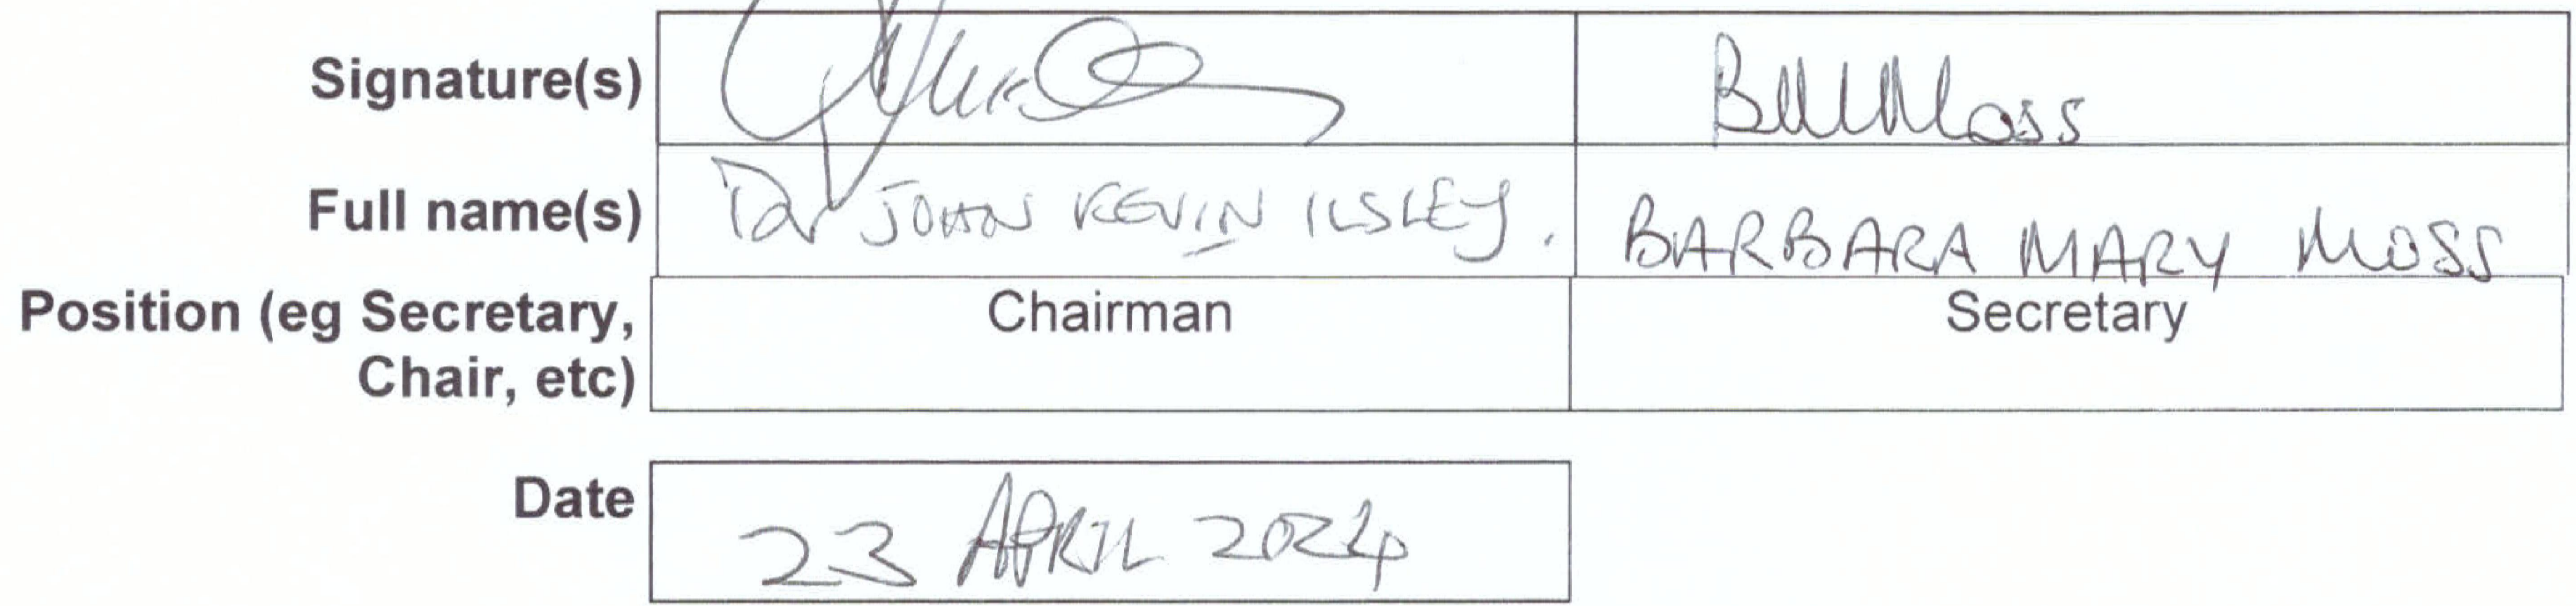 Signature(s) BMMoss
Full name(s) Dr JOHN KEVIN ILSLEY. BARBARA MARY MOSS
Position (eg Secretary, Chairman Secretary
Chair, etc)
Date 23 APRIL 2024